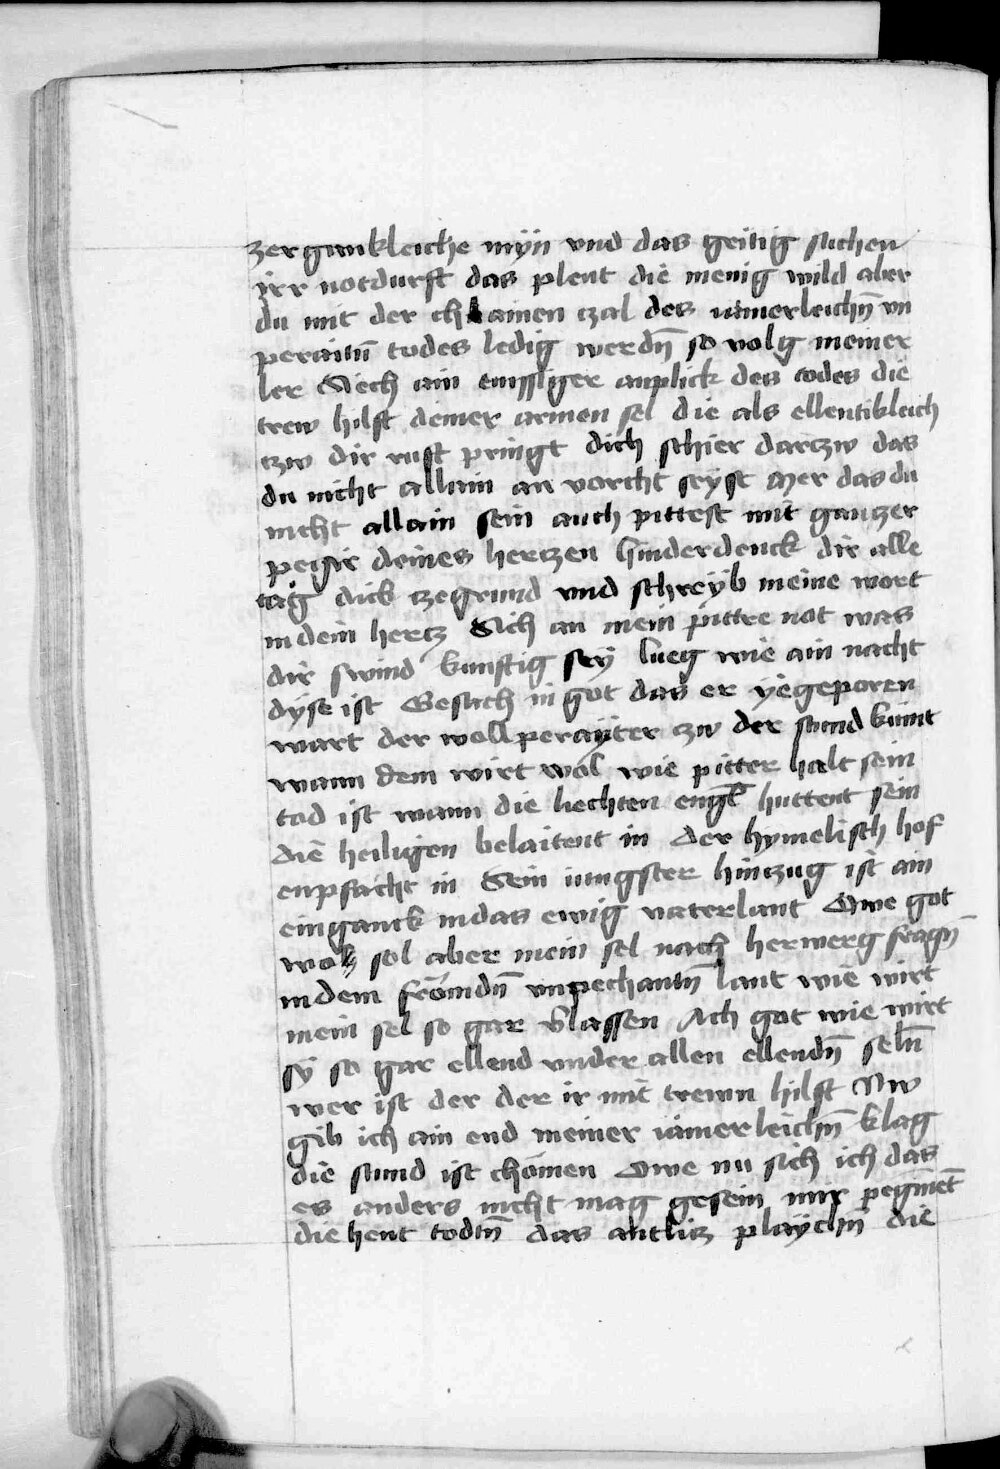 zergankleiche mÿn vnd das geitig suchen
irr notdurft das plent die menig wild aber
du mit der chlainen czal des iämerleichn̄ vn
peraitn̄ todes ledig werdn̄ so volg meiner
ler Siech ain emssiger anplick des todes die
trew hilft deiner armen sel die als ellentikleich
czw dir rust pringt dich schier darczw das
du nicht allain an vorcht seyst Mer das du
nicht allain sein auch pittest mit ganczer
pegir deines herczen hinderdenck dir alle
tag dick czegrund vnd schreÿb meine wort
in dein hertz Sich an mein pittre not was
dir swind kunftig seÿ lueg wie ain nacht
dyse ist Gesach in got das er ÿe geporen
wart der woll peraÿter zw der stund kumt
wann dem wirt wol wie pitter halt sein
tod ist wann die liechten engl̄ huttent sein
die heiligen belaitent in der hymelisch hof
enpfacht in Sein iungster hinczug ist ain
einganck in das ewig vaterlant Owe got
wo sol aber mein sel nach herwerg fragn̄
in dem frömdn̄ vnpechantn̄ lant wie wirt
mein sel so gar v̄lassen Ach got wie wirt
sÿ so gar ellend vnder allen ellendn̄ seln̄
wer ist der der ir mit trewn hilft Nw
gib ich ain end meiner iämerleichn̄ klag
die stund ist chömen Owe nu sich ich das
es anders nicht mag gesein mir pegin̄et
die hent todtn̄ das antlicz playchn̄ die